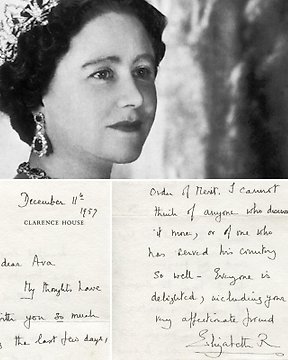 December 11th
1957
CLARENCE HOUSE
dear Ava
My thoughts have
with you so much
the last few days,
Order of Merit. I cannot
think of anyone who
it more, or of one who
has served his country
so well – Everyone is
delighted, including your
very affectionate friend
Elizabeth R